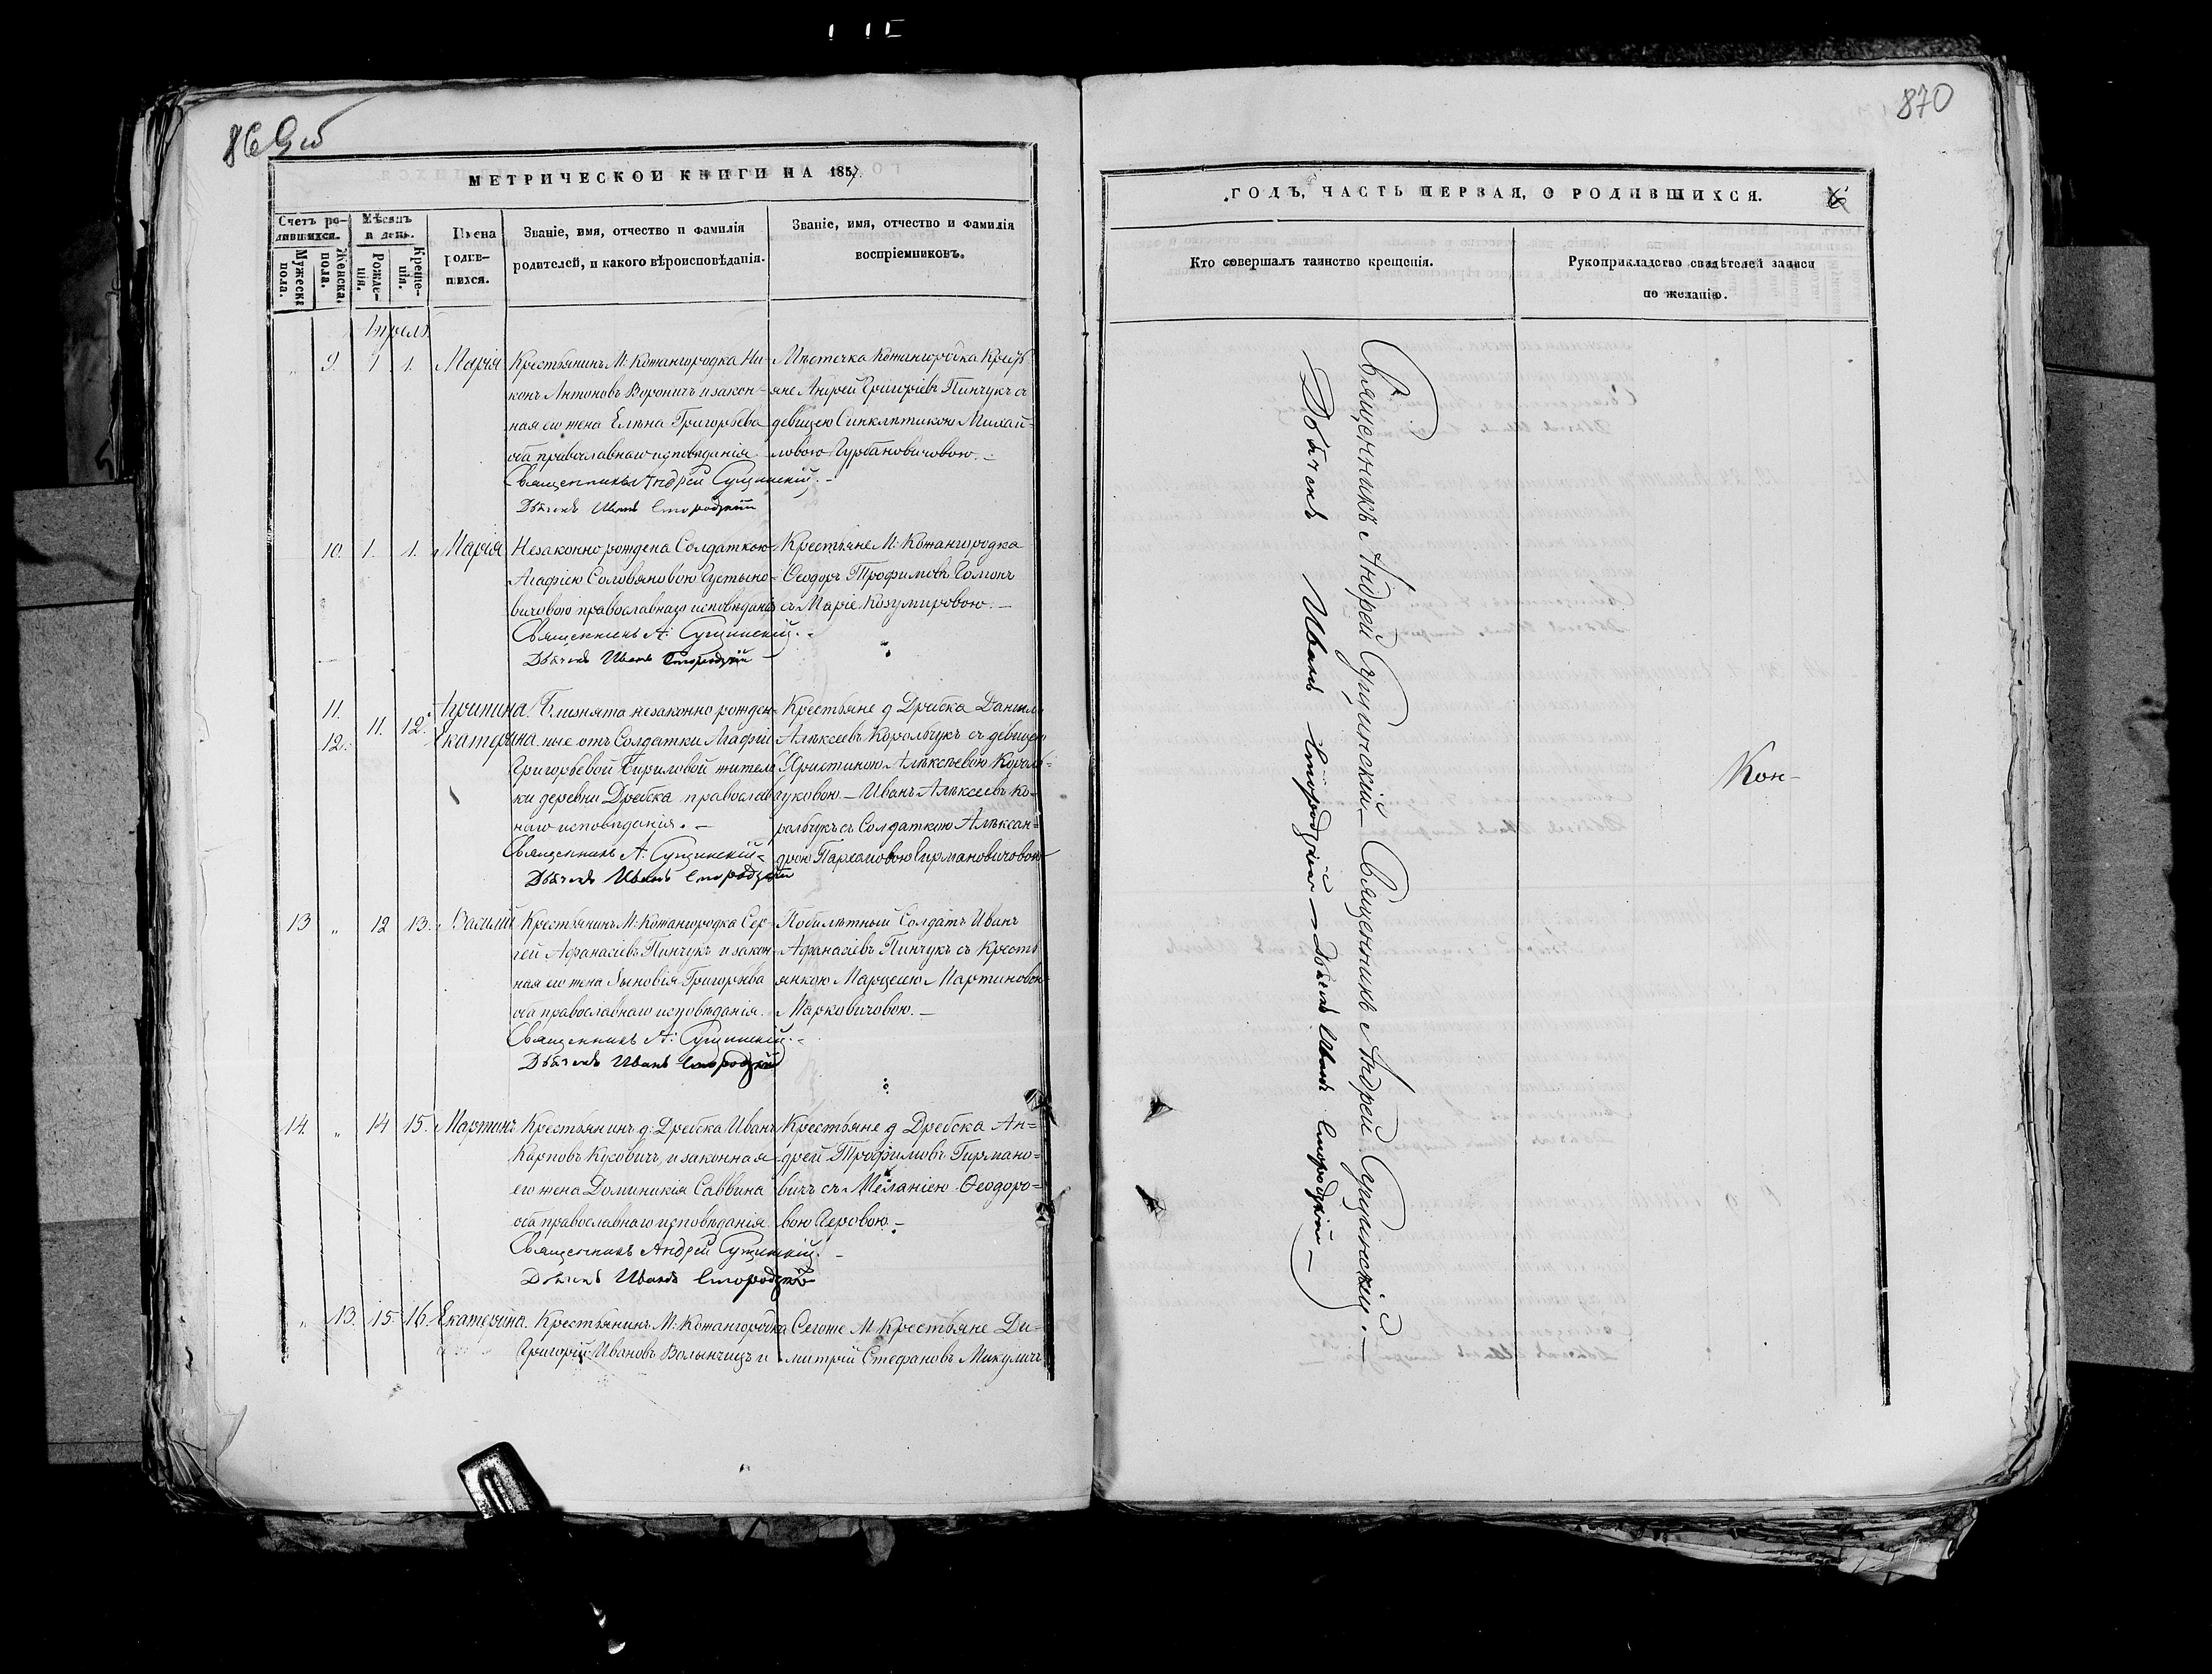 869 об
МЕТРИЧЕСКОЙ КНИГИ НА 1857
Счетъ ро-
дившихся.
Мѣсяцъ
и день.
Имена
родив-
шихся.
Званіе, имя, отчество и фамилія
родителей, и какого вѣроисповѣданія.
Званіе, имя, отчество и фамилія
воспріемниковъ.
Мужеска
пола.
Женска
пола.
Рожде-
нія.
Креще-
нія.
Апрель
" 9. 1 1. Марія
Крестьянинъ М: Кожангородка Ни-
конъ Антоновъ Вороничъ и закон-
ная его жена Елѣна Григорьева
оба православнаго исповѣданія.
Священникъ Андрей Сущинскій.-
Дьячекъ Иванъ
Мѣстечка Кожангородка Кресть
яне Андрей Григоріевъ Пинчукъ съ
девицею Синклѣтикою Михай-
ловою Курбановичовою.-
10. 1. 1. Марія
Незаконно рождена Солдаткою
Агафіею
вичовою православнаго исповѣданія
Священникъ А: Сущинскій.-
Дьячекъ Иванъ
Крестьяне М: Кожангородка
Ѳеодоръ Трофимовъ Гоманъ
съ Маріе Козумировою.-
11.
12. 11. 12.
Агрипина.
Екатерина.
Близнята незаконно рожден-
ные отъ Солдатки Агафіи
Григорьевой Кириловой жител
ки деревни Дребска православ
наго исповѣданія.-
Священникъ А: Сущинскій-
Дьячекъ Иванъ
Крестьяне д Дребска Данила
Алѣксѣевъ Корольчукъ съ дѣвицею
Христиною Алѣксѣевою Король-
чуковою.- Иванъ Алѣксѣевъ Ко-
рольчукъ съ Солдаткою Алѣксан-
дрою Пархомовою Гирмановичовою
13 " 12 13. Василій
Крестьянинъ М: Кожангородка Сер-
гей Афанасіевъ Пинчукъ и закон-
ная его жена Зыновія Григорьева
оба православнаго исповѣданія.
Священникъ А: Сущинскій.-
Дьячекъ Иванъ
Побилѣтный Солдатъ Иванъ
Афанасіевъ Пинчукъ съ Кресть
янкою Марцелею Мартиновою
Марковичовою.-
14. " 14 15. Мартинъ
Крестьянинъ д: Дребска Иванъ
Карповъ Кусовичъ, и законная
его жена Доминикія Саввина
оба православнаго исповѣданія.
Священникъ Андрей Сущинскій.-
Дьячекъ Иванъ
Крестьяне д Дребска Ан-
дрей Трофимовъ Гирмано-
вичъ съ Меланіею Ѳеодоро-
вою
" 13. 15. 16. Екатерина.
Крестьянинъ М: Кожангородка
Григорій Ивановъ Волынчицъ и
Сегоже М Крестьяне Ди-
митрій Стефановъ Микуличъ
870
ГОДЪ, ЧАСТЬ ПЕРВАЯ, О РОДИВШИХСЯ.
Кто совершалъ таинство крещенія.
Рукоприкладство свидѣтелей записи
по желанію.
Священникъ Андрей Сущинскій.- Священникъ Андрей Сущинскій.-
Дьячекъ Иванъ - Дьячекъ Иванъ
Кон-